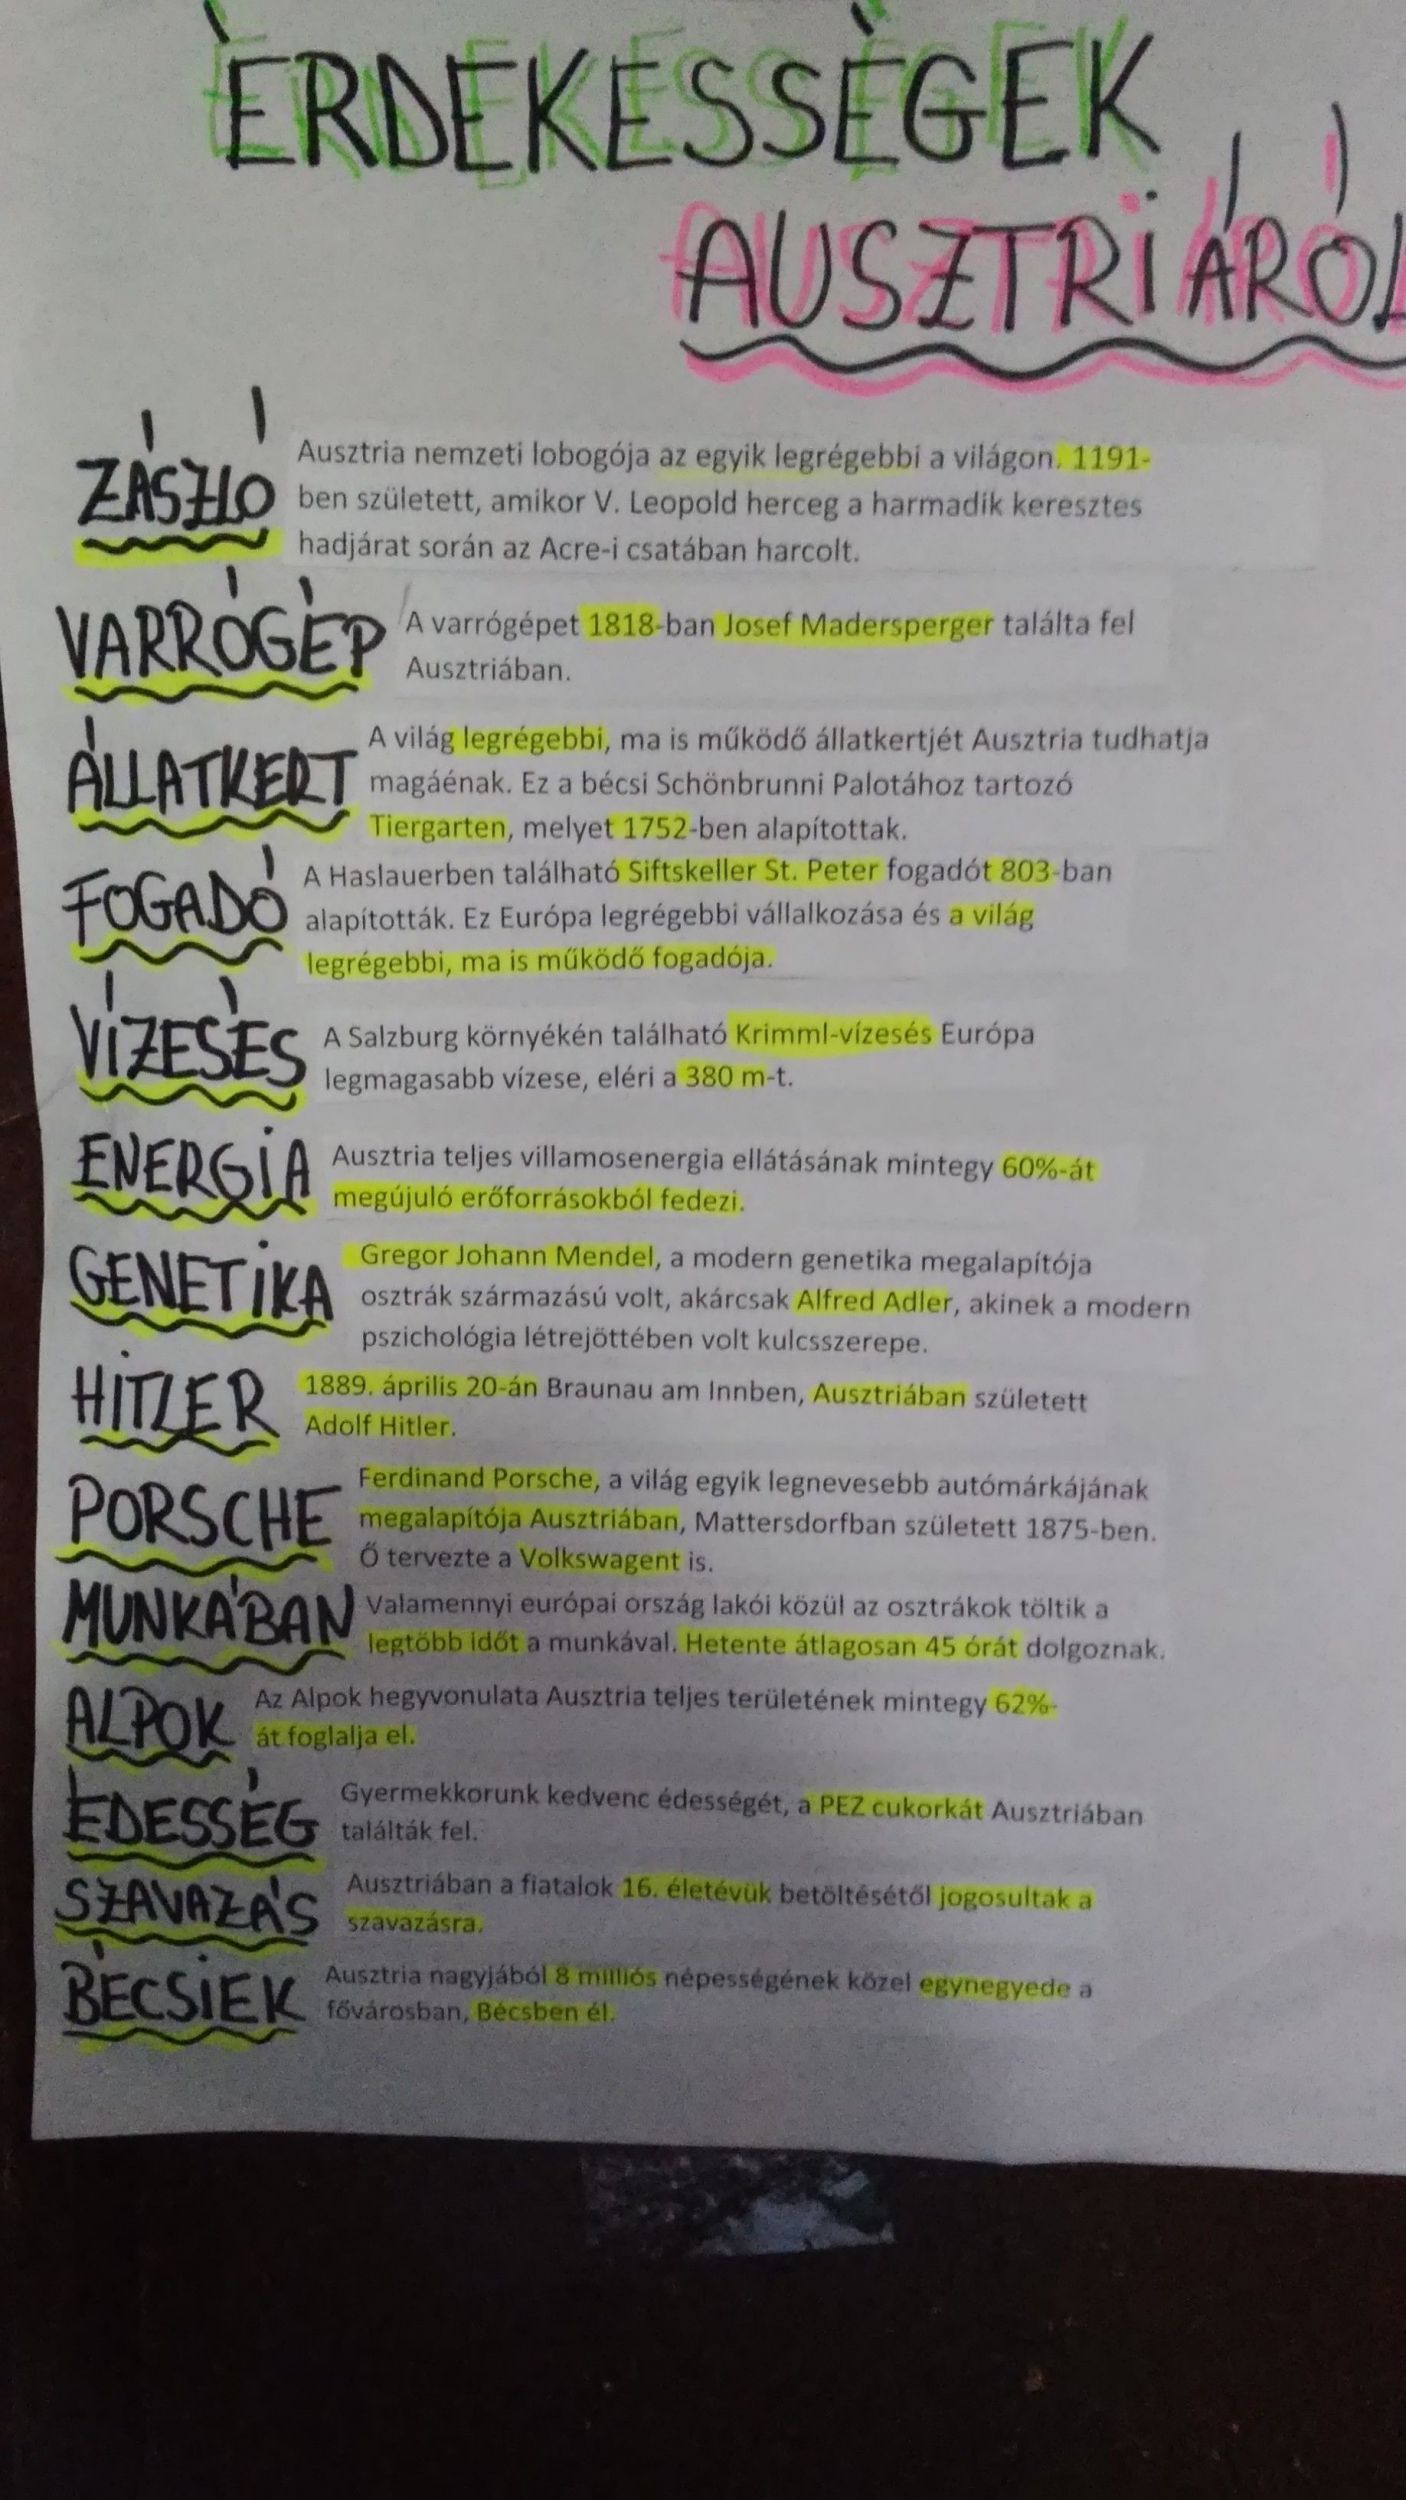 ÉRDEKESSÉGEK
AUSZTRIÁRÓL
ZÁSZLÓ
Ausztria nemzeti lobogója az egyik legrégebbi a világon. 1191-
ben született, amikor V. Leopold herceg a harmadik keresztes
hadjárat során az Acre-i csatában harcolt.
VARRÓGÉP
A varrógépet 1818-ban Josef Madersperger találta fel
Ausztriában.
ÁLLATKERT
A világ legrégebbi, ma is működő állatkertjét Ausztria tudhatja
magáénak. Ez a bécsi Schönbrunni Palotához tartozó
Tiergarten, melyet 1752-ben alapítottak.
FOGADÓ
A Haslauerben található Siftskeller St. Peter fogadót 803-ban
alapították. Ez Európa legrégebbi vállalkozása és a világ
legrégebbi, ma is működő fogadója.
VÍZESÉS
A Salzburg környékén található Krimml-vízesés Európa
legmagasabb vízese, eléri a 380 m-t.
ENERGIA
Ausztria teljes villamosenergia ellátásának mintegy 60%-át
megújuló erőforrásokból fedezi.
GENETIKA
Gregor Johann Mendel, a modern genetika megalapítója
osztrák származású volt, akárcsak Alfred Adler, akinek a modern
pszichológia létrejöttében volt kulcsszerepe.
HITLER
1889. április 20-án Braunau am Innben, Ausztriában született
Adolf Hitler.
PORSCHE
Ferdinand Porsche, a világ egyik legnevesebb autómárkájának
megalapítója Ausztriában, Mattersdorfban született 1875-ben.
Ő tervezte a Volkswagent is.
MUNKÁBAN
Valamennyi európai ország lakói közül az osztrákok töltik a
legtöbb időt a munkával. Hetente átlagosan 45 órát dolgoznak.
ALPOK
Az Alpok hegyvonulata Ausztria teljes területének mintegy 62%-
át foglalja el.
ÉDESSÉG
Gyermekkorunk kedvenc édességét, a PEZ cukorkát Ausztriában
találták fel.
SZAVAZÁS
Ausztriában a fiatalok 16. életévük betöltésétől jogosultak a
szavazásra.
BÉCSIEK
Ausztria nagyjából 8 milliós népességének közel egynegyede a
fővárosban, Bécsben él.